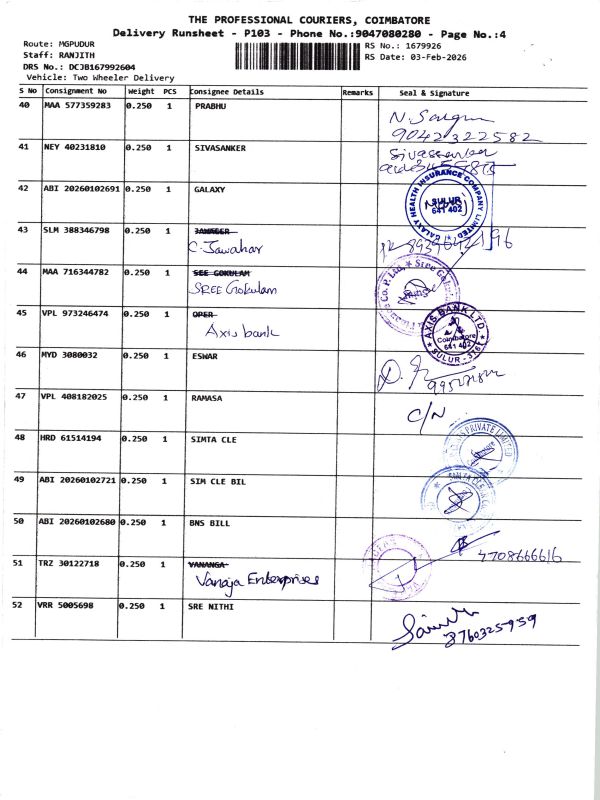 THE PROFESSIONAL COURIERS, COIMBATORE
Delivery Runsheet - P103 - Phone No.:9047080280 - Page No.:4
Route: MGPUDUR
RS No.: 1679926
Staff: RANJITH
RS Date: 03-Feb-2026
DRS No.: DCJB167992604
Vehicle: Two Wheeler Delivery
S No Consignment No Weight PCS Consignee Details Remarks Seal & Signature
40 MAA 577359283 0.250 1 PRABHU
9042322582
41 NEY 40231810 0.250 1 SIVASANKER
Sivasanker
42 ABI 20260102691 0.250 1 GALAXY
GALAXY HEALTH INSURANCE COMPANY LIMITED
SULUR
641 402
43 SLM 388346798 0.250 1 JAWAGER
C. Jawahar
44 MAA 716344782 0.250 1 SEE GOKULAM
SREE Gokulam
45 VPL 973246474 0.250 1 OPER
Axis bank
AXIS BANK LTD.
Coimbatore
641 402
SULUR
46 MYD 3080032 0.250 1 ESWAR
47 VPL 408182025 0.250 1 RAMASA
C/N
48 HRD 61514194 0.250 1 SIMTA CLE
PRIVATE LIMITED
49 ABI 20260102721 0.250 1 SIM CLE BIL
50 ABI 20260102680 0.250 1 BNS BILL
4708666616
51 TRZ 30122718 0.250 1 VANANGA
Vanaja Enterprises
52 VRR 5005698 0.250 1 SRE NITHI
8760325959